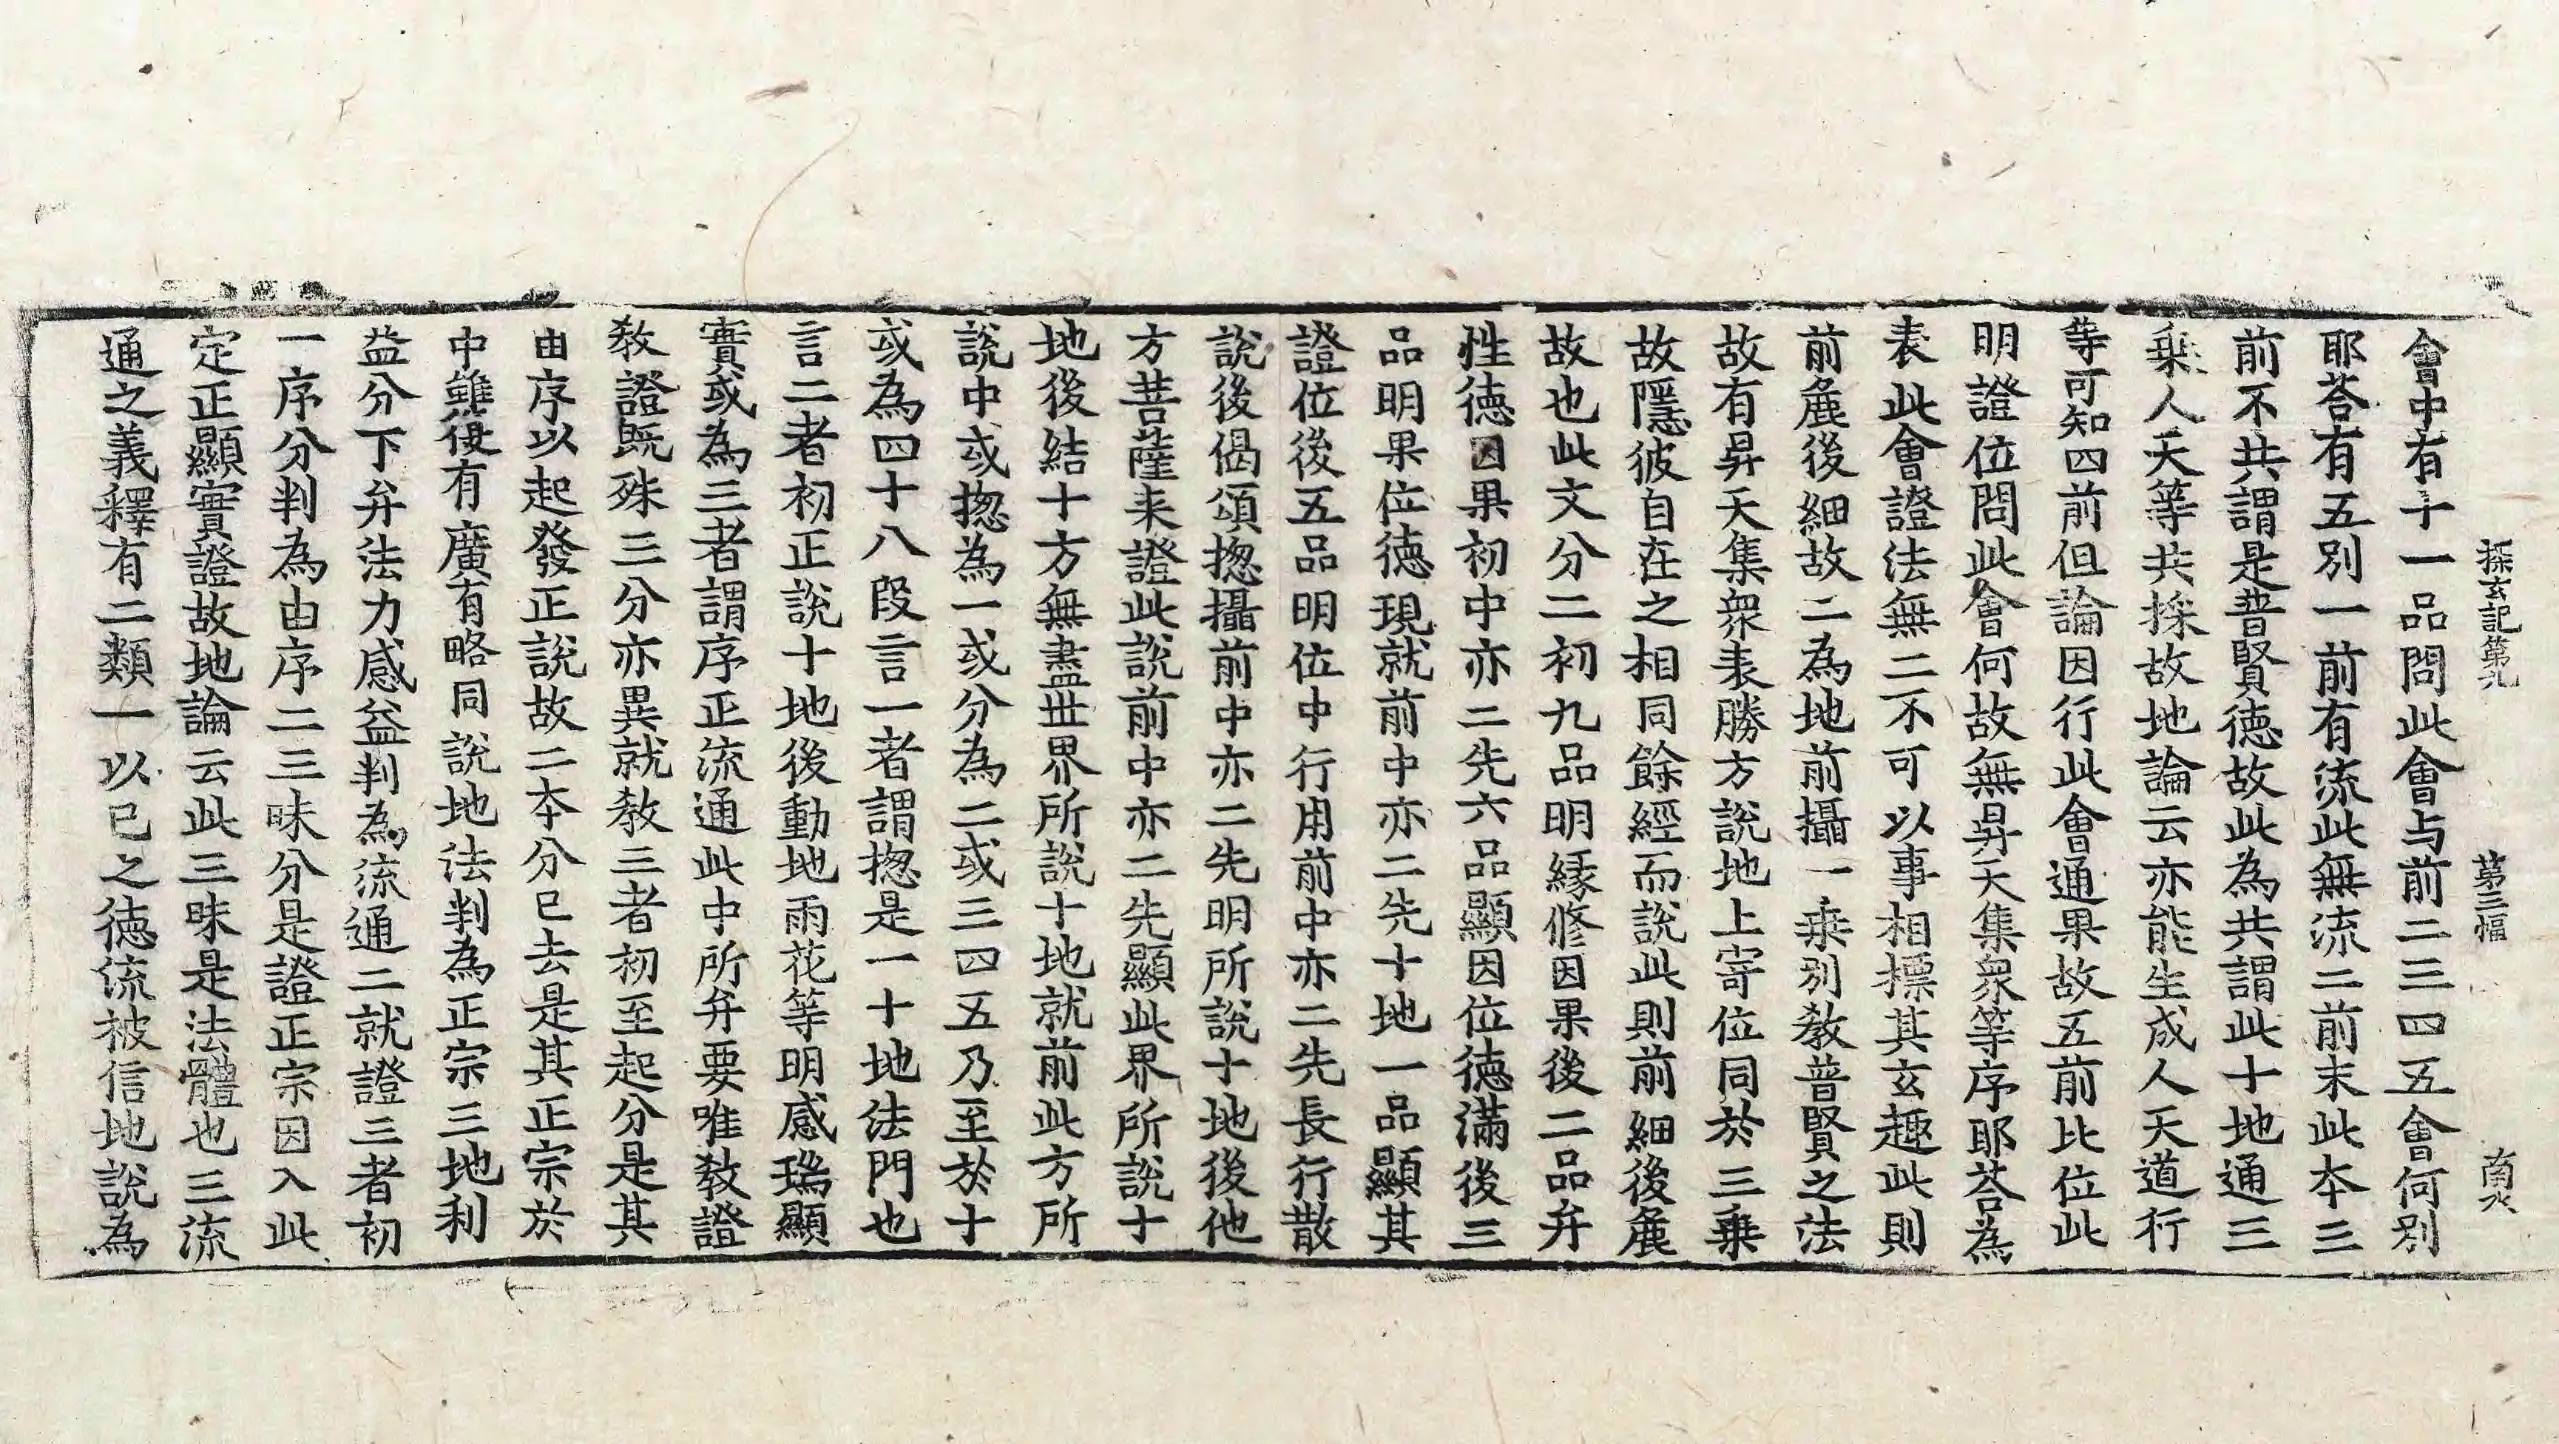 探玄記第九　第三幅　南火
會中有十一品問此會与前二三四五會何別
耶荅有五別一前有流此無流二前末此本三
前不共謂是普賢德故此為共謂此十地通三
乗人天等共採故地論云亦能生成人天道行
等可知四前但論因行此會通果故五前比位此
明證位問此會何故無昇天集衆等序耶荅為
表此會證法無二不可以事相標其玄趣此則
前麁後細故二為地前攝一乗別教普賢之法
故有昇天集衆表勝方說地上寄位同於三乗
故隱彼自在之相同餘經而說此則前細後麁
故也此文分二初九品明縁修因果後二品弁
性德因果初中亦二先六品顯因位德滿後三
品明果位德現就前中亦二先十地一品顯其
證位後五品明位中行用前中亦二先長行散
說後偈頌揔攝前中亦二先明所說十地後他
方菩薩来證此說前中亦二先顯此界所說十
地後結十方無盡世界所說十地就前此方所
說中或揔為一或分為二或三四五乃至於十
或為四十八段言一者謂揔是一十地法門也
言二者初正說十地後動地雨花等明感瑞顯
實或為三者謂序正流通此中所弁要唯教證
教證既殊三分亦異就教三者初至起分是其
由序以起發正說故二本分已去是其正宗於
中雖復有廣有略同說地法判為正宗三地利
益分下弁法力感益判為流通二就證三者初
一序分判為由序二三昧分是證正宗因入此
定正顯實證故地論云此三昧是法體也三流
通之義釋有二類一以已之德流被信地說為